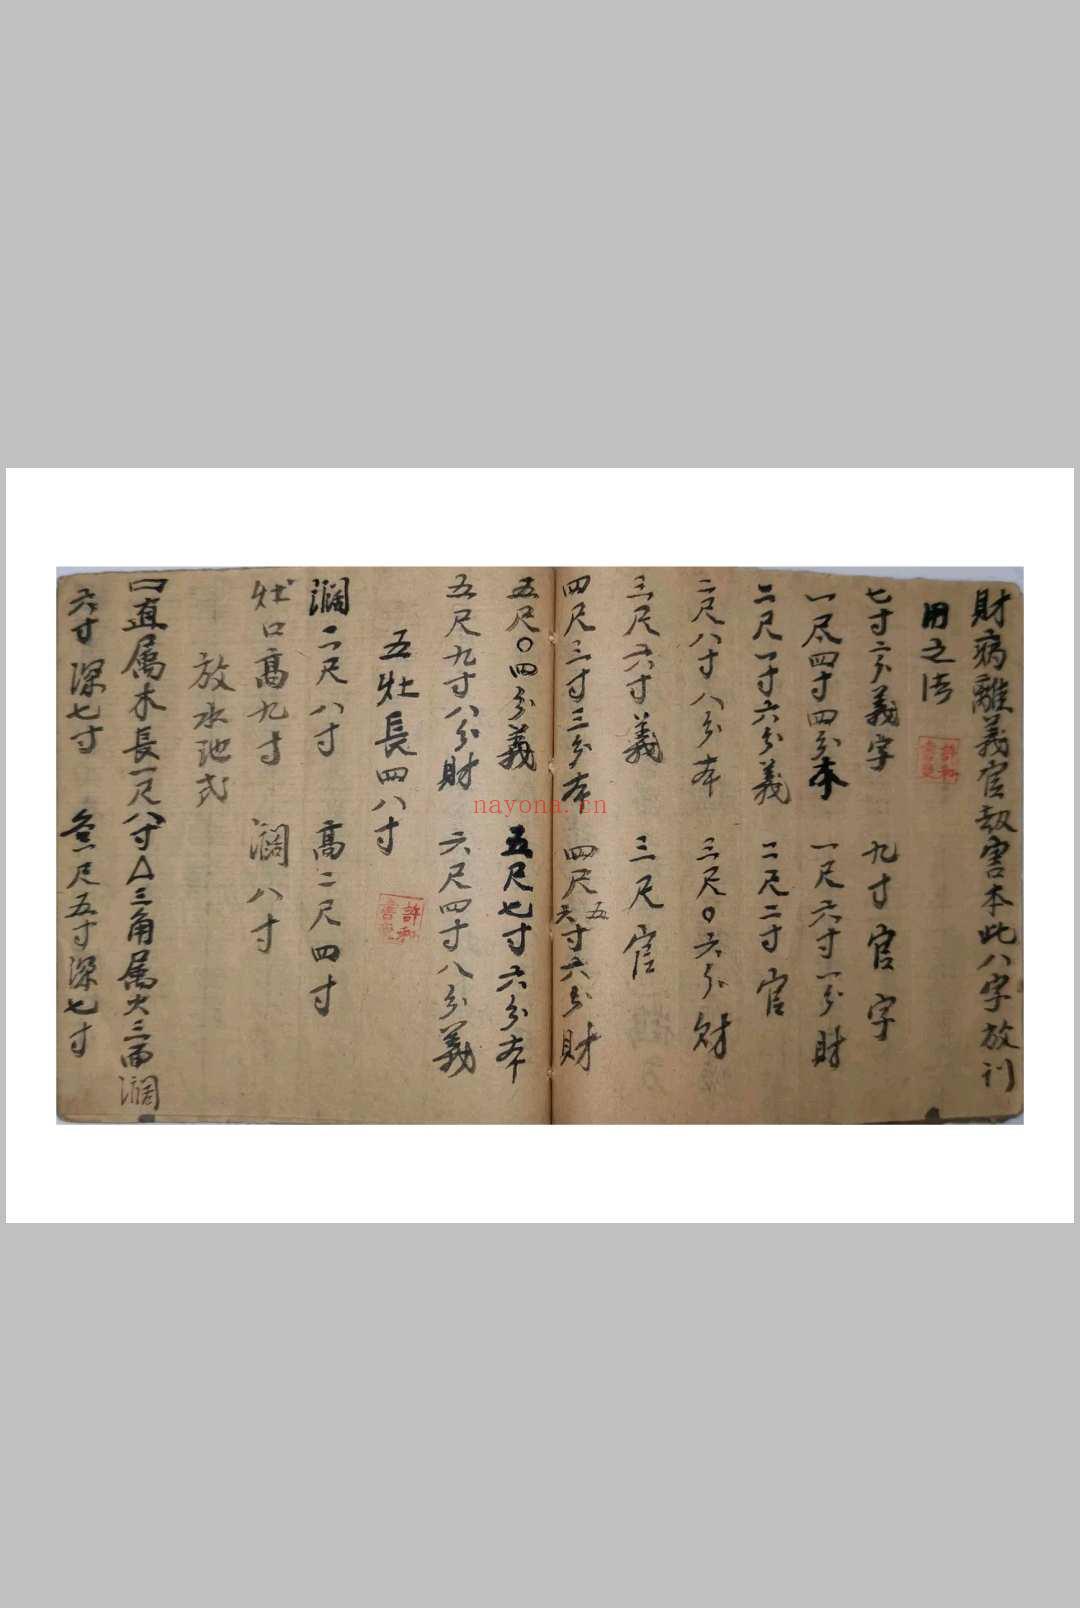 財病離義官刼害本此八字放刂
用之法
七寸六義字 九寸官字
一尺四寸四分本 一尺六寸一分財
二尺一寸六分義 二尺二寸官
二尺八寸八分本 三尺〇六分財
三尺六寸義 三尺官
四尺三寸三分本 四尺五六寸六分財
五尺〇四分義 五尺七寸六分本
五尺九寸八分財 六尺四寸八分義
五灶長四八寸
濶二尺八寸 高二尺四寸
灶口高九寸 濶八寸
放水池式
口直属木長一尺八寸△三角属火三面濶
六寸深七寸 尺五寸深七寸
nayona.cn